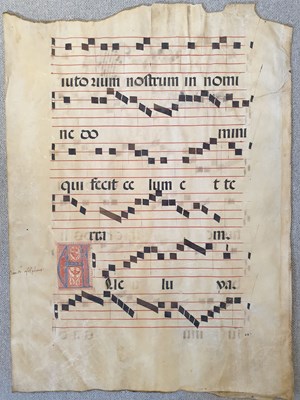 iutorium nostrum in nomi
ne do mini
qui fecit ce lum e t te
rra m.
A lle lu ya.